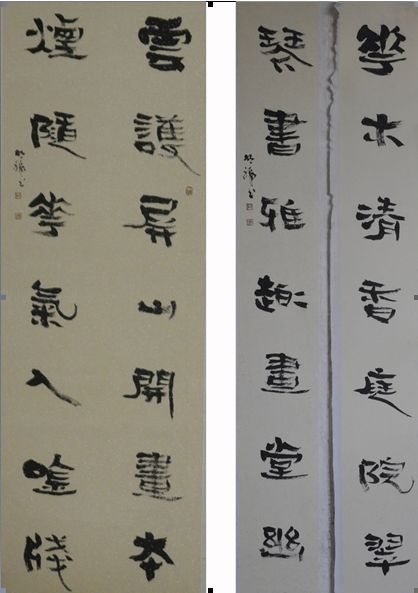 雲護屏山開畫本
煙隨華氣入唫牋
華木清香庭院翠
琴書雅趣畫堂幽